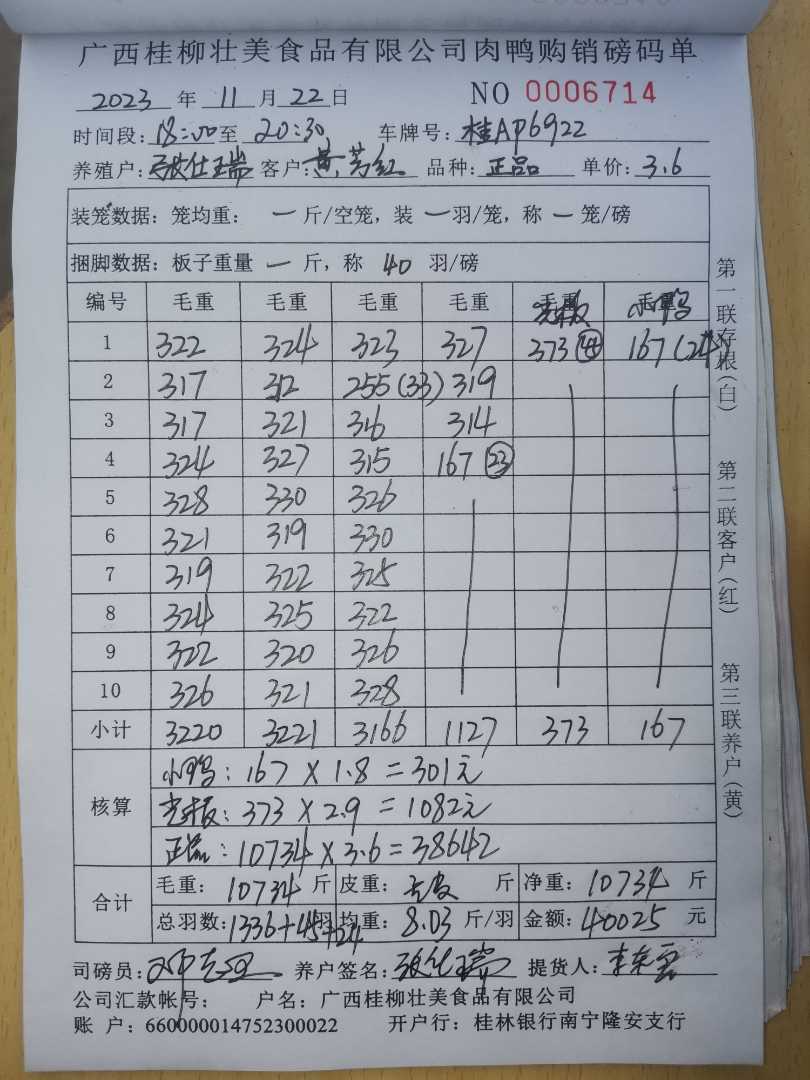 广西桂柳壮美食品有限公司肉鸭购销磅码单
2023 年 11 月 22 日 NO 0006714
时间段: 18:00 至 20:30 车牌号: 桂AP6922
养殖户: 张仕瑞 客户: 黄芳红 品种: 正品 单价: 3.6
装笼数据: 笼均重: 一 斤/空笼, 装 一 羽/笼, 称 一 笼/磅
捆脚数据: 板子重量 一 斤, 称 40 羽/磅
编号 毛重 毛重 毛重 毛重 毛重 毛重 小鸭
1 322 324 323 327 373 167 (24)
2 317 312 255 (33) 319
3 317 321 316 314
4 324 327 315 167 (23)
5 328 330 326
6 321 319 330
7 319 322 325
8 324 325 322
9 322 320 326
10 326 321 328
小计 3220 3221 3166 1127 373 167
核算
小鸭: 167 × 1.8 = 301元
373 × 2.9 = 1082元
正品: 10734 × 3.6 = 38642
合计
毛重: 10734 斤 皮重: 斤 净重: 10734 斤
总羽数: 1336+45+24 羽 均重: 8.03 斤/羽 金额: 40025 元
司磅员: 养户签名: 张仕瑞 提货人:
公司汇款帐号: 户名: 广西桂柳壮美食品有限公司
账 户: 660000014752300022 开户行: 桂林银行南宁隆安支行
第一联存根(白)
第二联客户(红)
第三联养户(黄)